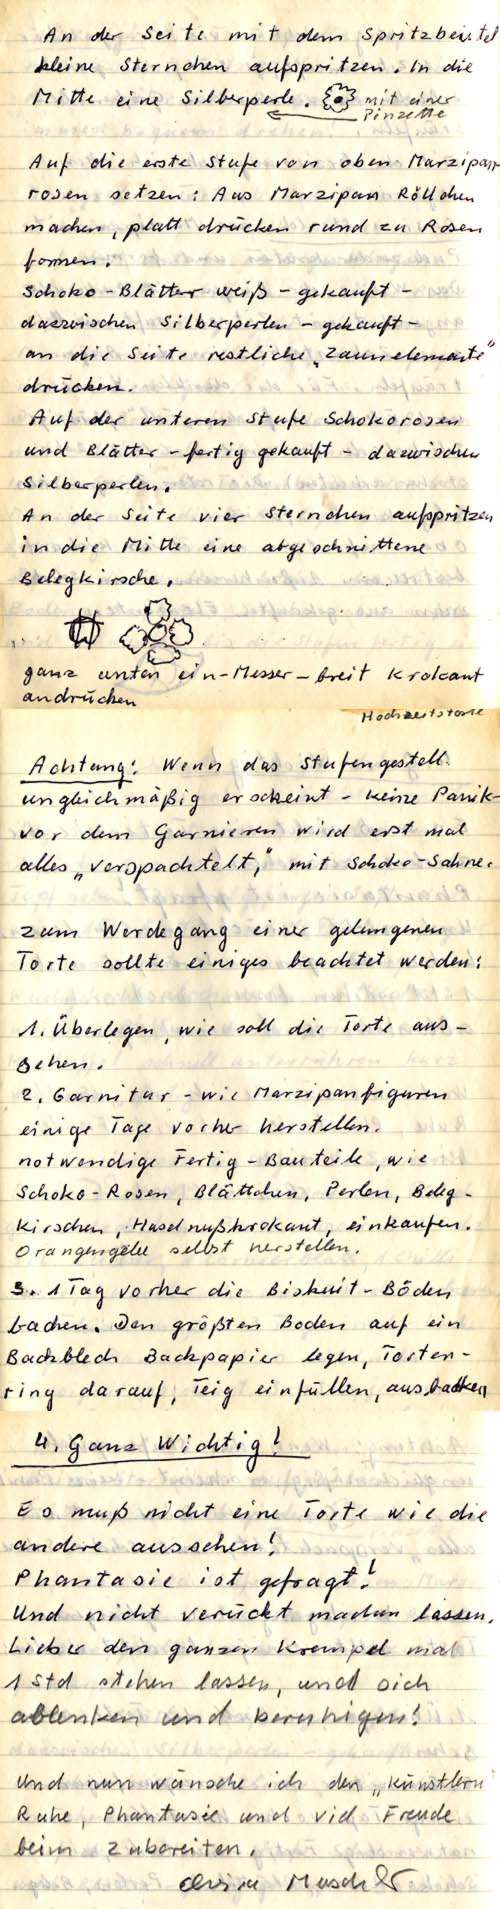 An der Seite mit dem Spritzbeutel
kleine Sternchen aufspritzen. In die
Mitte eine Silberperle. mit einer
Pinzette
Auf die erste Stufe von oben Marzipan
rosen setzen: Aus Marzipan Röllchen
machen, platt drücken rund zu Rosen
formen.
Schoko-Blätter weiß - gekauft -
dazwischen Silberperlen - gekauft -
an die Seite restliche „Zaunelemente"
drücken.
Auf der unteren Stufe Schokorosen
und Blätter - fertig gekauft - dazwischen
Silberperlen.
An der Seite vier Sternchen aufspritzen
in die Mitte eine abgeschnittene
Belegkirsche.
ganz unten ein-Messer-breit Krokant
andrücken
Hochzeitstorte
Achtung: Wenn das Stufengestell
ungleichmäßig erscheint - keine Panik -
vor dem Garnieren wird erst mal
alles „verspachtelt," mit Schoko-Sahne.
Zum Werdegang einer gelungenen
Torte sollte einiges beachtet werden:
1. Überlegen, wie soll die Torte aus-
sehen.
2. Garnitur - wie Marzipanfiguren
einige Tage vorher herstellen.
notwendige Fertig-Bauteile, wie
Schoko-Rosen, Blättchen, Perlen, Beleg-
kirschen, Haselnußkrokant, einkaufen.
Orangengelee selbst herstellen.
3. 1 Tag vorher die Biskuit-Böden
backen. Den größten Boden auf ein
Backblech Backpapier legen, Torten-
ring darauf, Teig einfüllen, ausbacken
4. Ganz Wichtig!
Es muß nicht eine Torte wie die
andere aussehen!
Phantasie ist gefragt!
Und nicht verückt machen lassen.
Lieber den ganzen Krempel mal
1 Std stehen lassen, und sich
ablenken und beruhigen!
Und nun wünsche ich den „Künstlern"
Ruhe, Phantasie und viel Freude
beim Zubereiten.